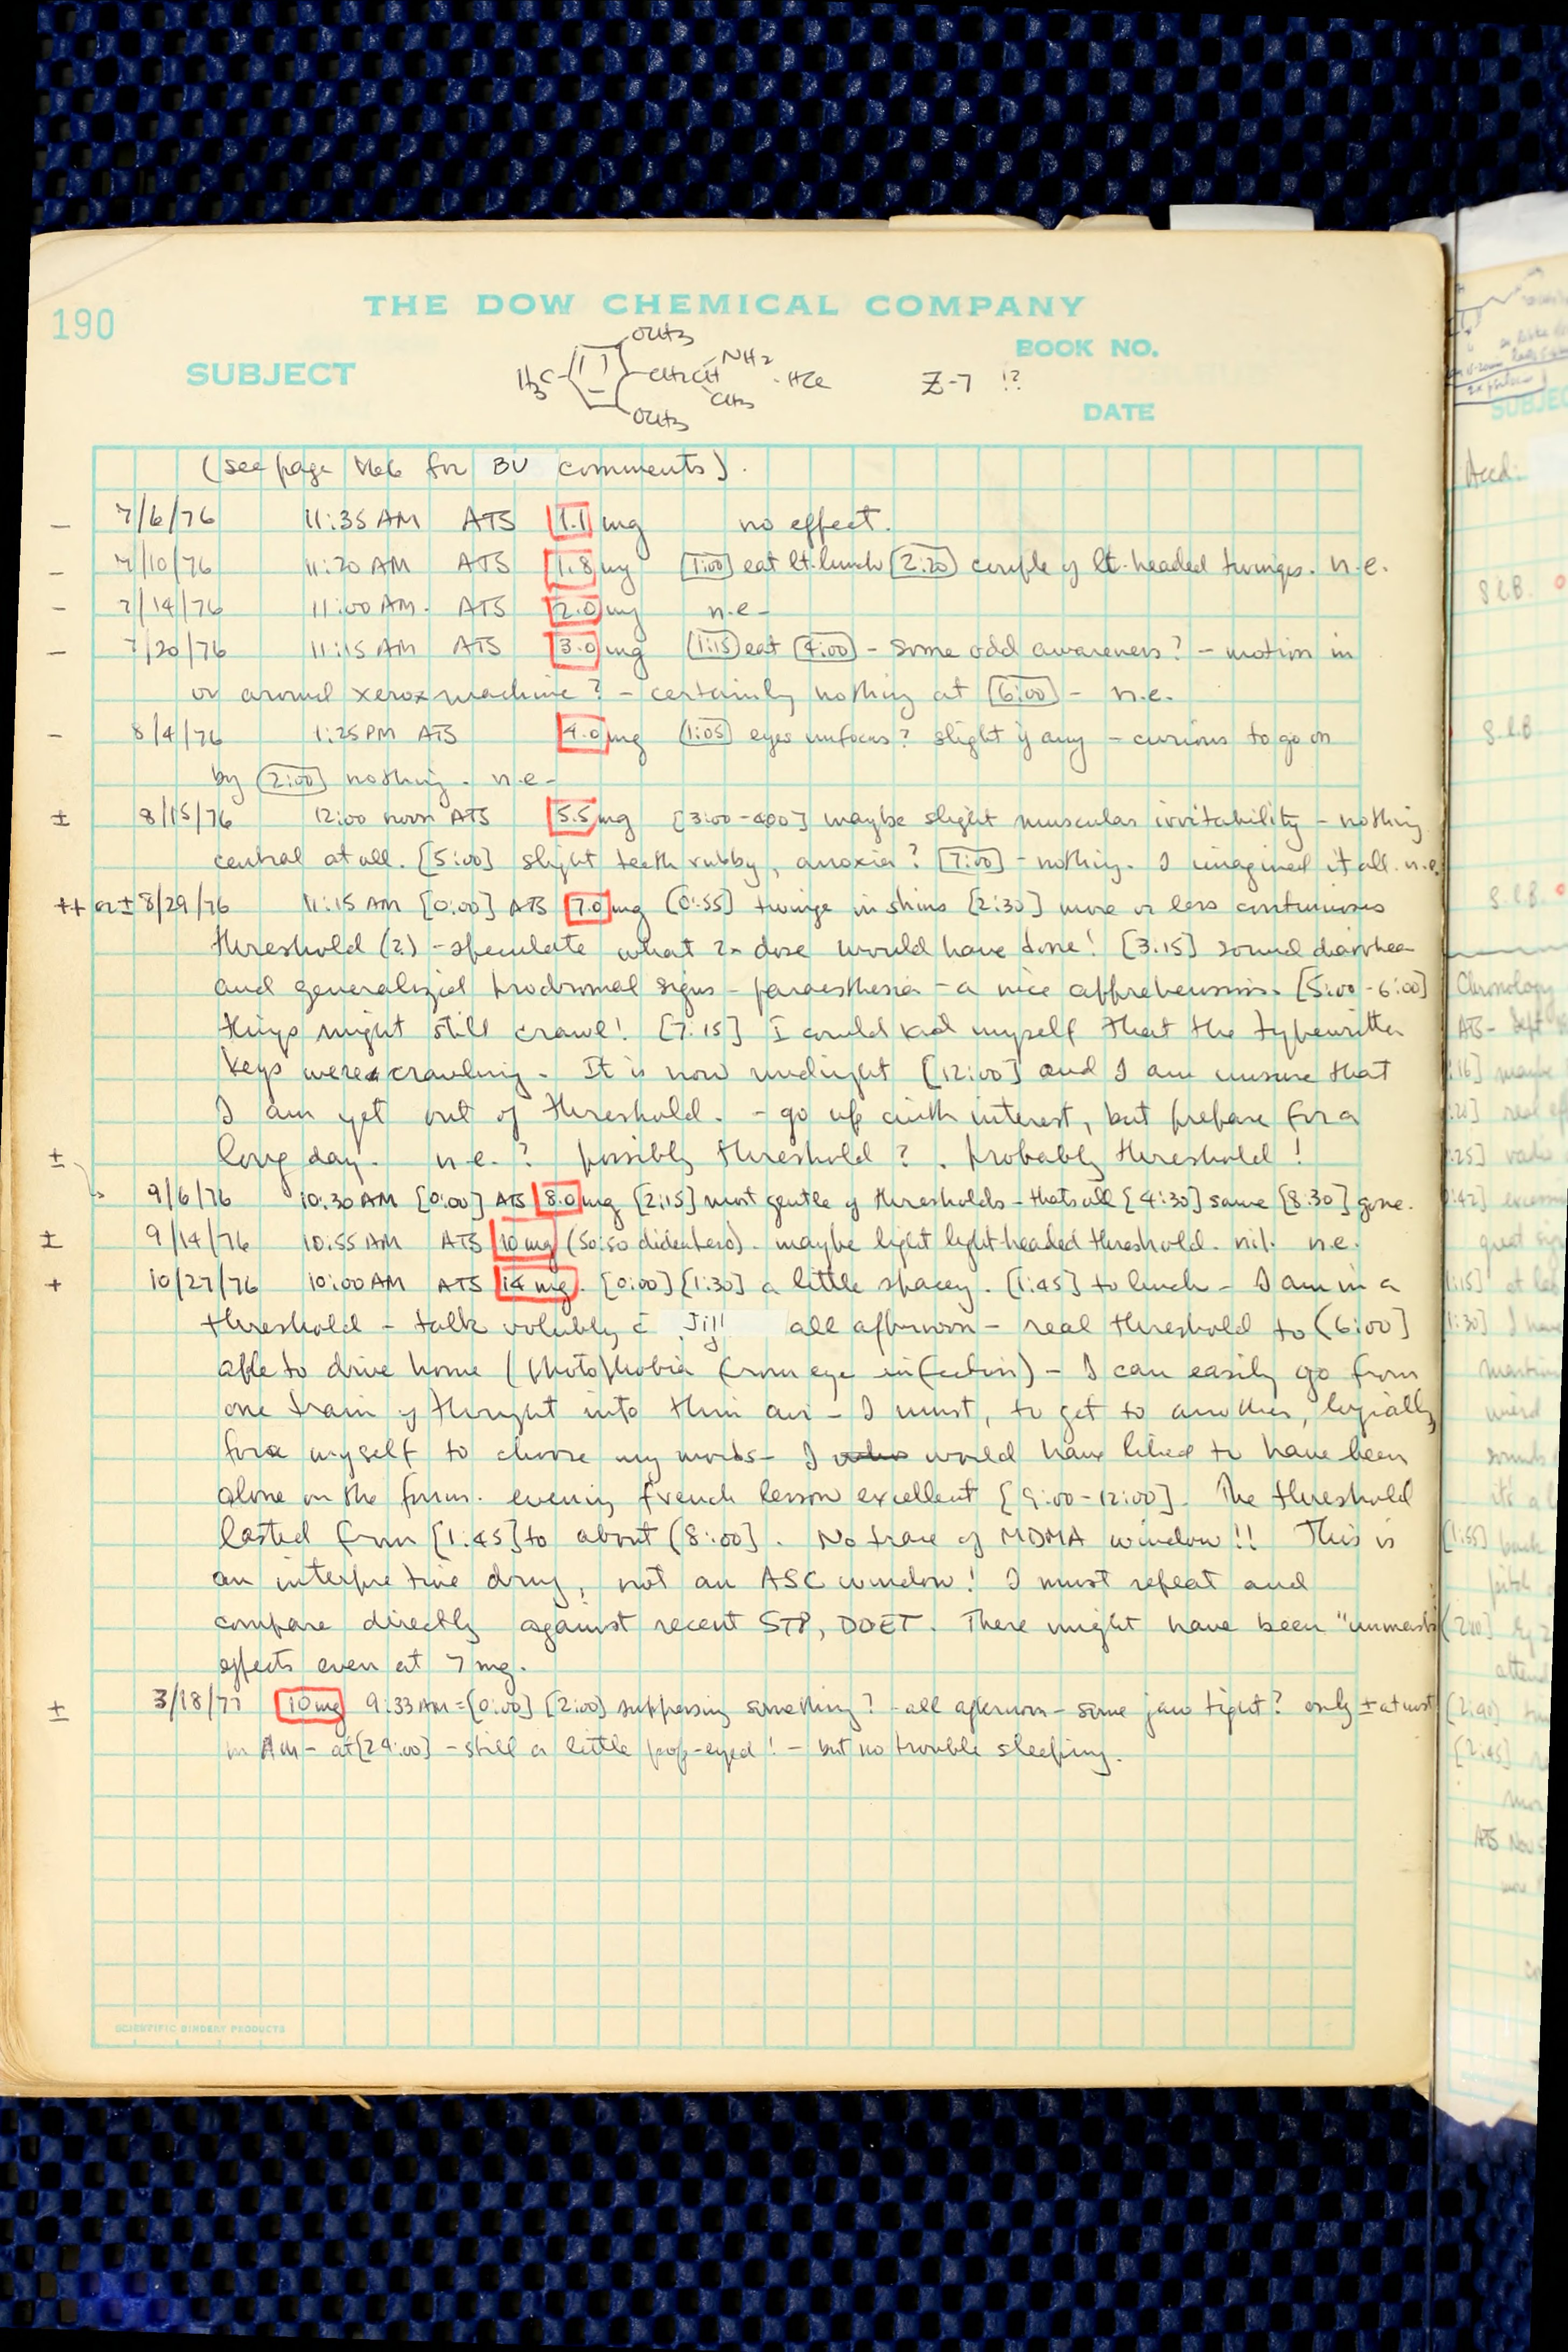 190
THE DOW CHEMICAL COMPANY
SUBJECT
BOOK NO.
DATE
OCH3
H3C
CH2CH
NH2
CH3
·HCl
OCH3
Z-7 !?
(see page for BU comments).
- 7/6/76 11:35 AM ATS 1.1 mg no effect.
- 7/10/76 11:20 AM ATS 1.8 mg 1:00 eat lt. lunch 2:20 couple of lt. headed twinges. n.e.
- 7/14/76 11:00 AM. ATS 2.0 mg n.e-
- 7/20/76 11:15 AM ATS 3.0 mg 1:15 eat 4:00 - some odd awareness? - motion in
or around xerox machine? - certainly nothing at 6:00 - n.e.
- 8/4/76 1:25 PM ATS 4.0 mg 1:05 eyes unfocus? slight if any - curious to go on
by 2:00 nothing. n.e-
± 8/15/76 12:00 noon ATS 5.5 mg [3:00-400] maybe slight muscular irritability - nothing
central at all. [5:00] slight teeth rubby, anoxia? 7:00 - nothing. I imagined it all. n.e.
++ or ± 8/29/76 11:15 AM [0:00] ATS 7.0 mg [0:55] twinge in shins [2:30] more or less continuous
threshold (?) - speculate what 2x dose would have done! [3:15] sound diarrhea
and generalized prodromal signs - paraesthesia - a nice apprehension. [5:00-6:00]
things might still crawl! [7:15] I could kid myself that the typewriter
keys were crawling. It is now midnight [12:00] and I am unsure that
I am yet out of threshold. - go up with interest, but prepare for a
long day. n.e.? possibly threshold?. probably threshold!
± 9/6/76 10:30 AM [0:00] ATS 8.0 mg [2:15] most gentle of thresholds - thats all [4:30] same [8:30] gone.
± 9/14/76 10:55 AM ATS 10 mg (50:50 didentero). maybe light light-headed threshold. nil. n.e.
+ 10/27/76 10:00 AM ATS 14 mg. [0:00] [1:30] a little spacey. [1:45] to lunch - I am in a
threshold - talk volubly c̄ Jill all afternoon - real threshold to [6:00]
able to drive home (photophobia from eye infection) - I can easily go from
one train of thought into thin air - I must, to get to another, logically
force myself to choose my words - I would have liked to have been
alone on the farm. evening french lesson excellent [9:00-12:00]. The threshold
lasted from [1:45] to about [8:00]. No trace of MDMA window!! This is
an interpretive drug, not an ASC window! I must repeat and
compare directly against recent STP, DOET. There might have been "unmask
effects even at 7 mg.
± 3/18/77 10 mg 9:33 AM = [0:00] [2:00] suppressing something? - all afternoon - some jaw tight? only ± at most
in AM - at [24:00] - still a little pop-eyed! - but no trouble sleeping.
SCIENTIFIC BINDERY PRODUCTS
SUBJEC
Accd:
S.L.B.
S.L.B
S.L.B.
Chronology
ATS - Sept